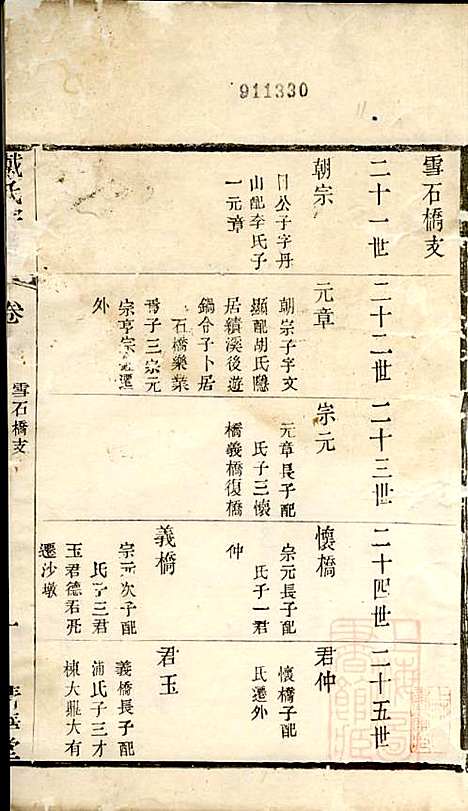 911330
雪石橋支
二十一世
朝宗
日公子字丹
山配李氏子
一元章
二十二世
元章
朝宗子字文
顯配胡氏隱
居績溪後遊
鍋令子卜居
石橋樂業
焉子三宗元
宗亨宗遷
外
二十三世
宗元
元章長子配
氏子三懷
橋義橋復橋
二十四世
懷橋
宗元長子配
氏子一君
仲
義橋
宗元次子配
氏子三君
玉君德君死
遷沙墩
二十五世
君仲
懷橋子配
氏遷外
君玉
義橋長子配
浦氏子三才
棟大鼎大有
戴氏
卷
雪石橋支
一
堂